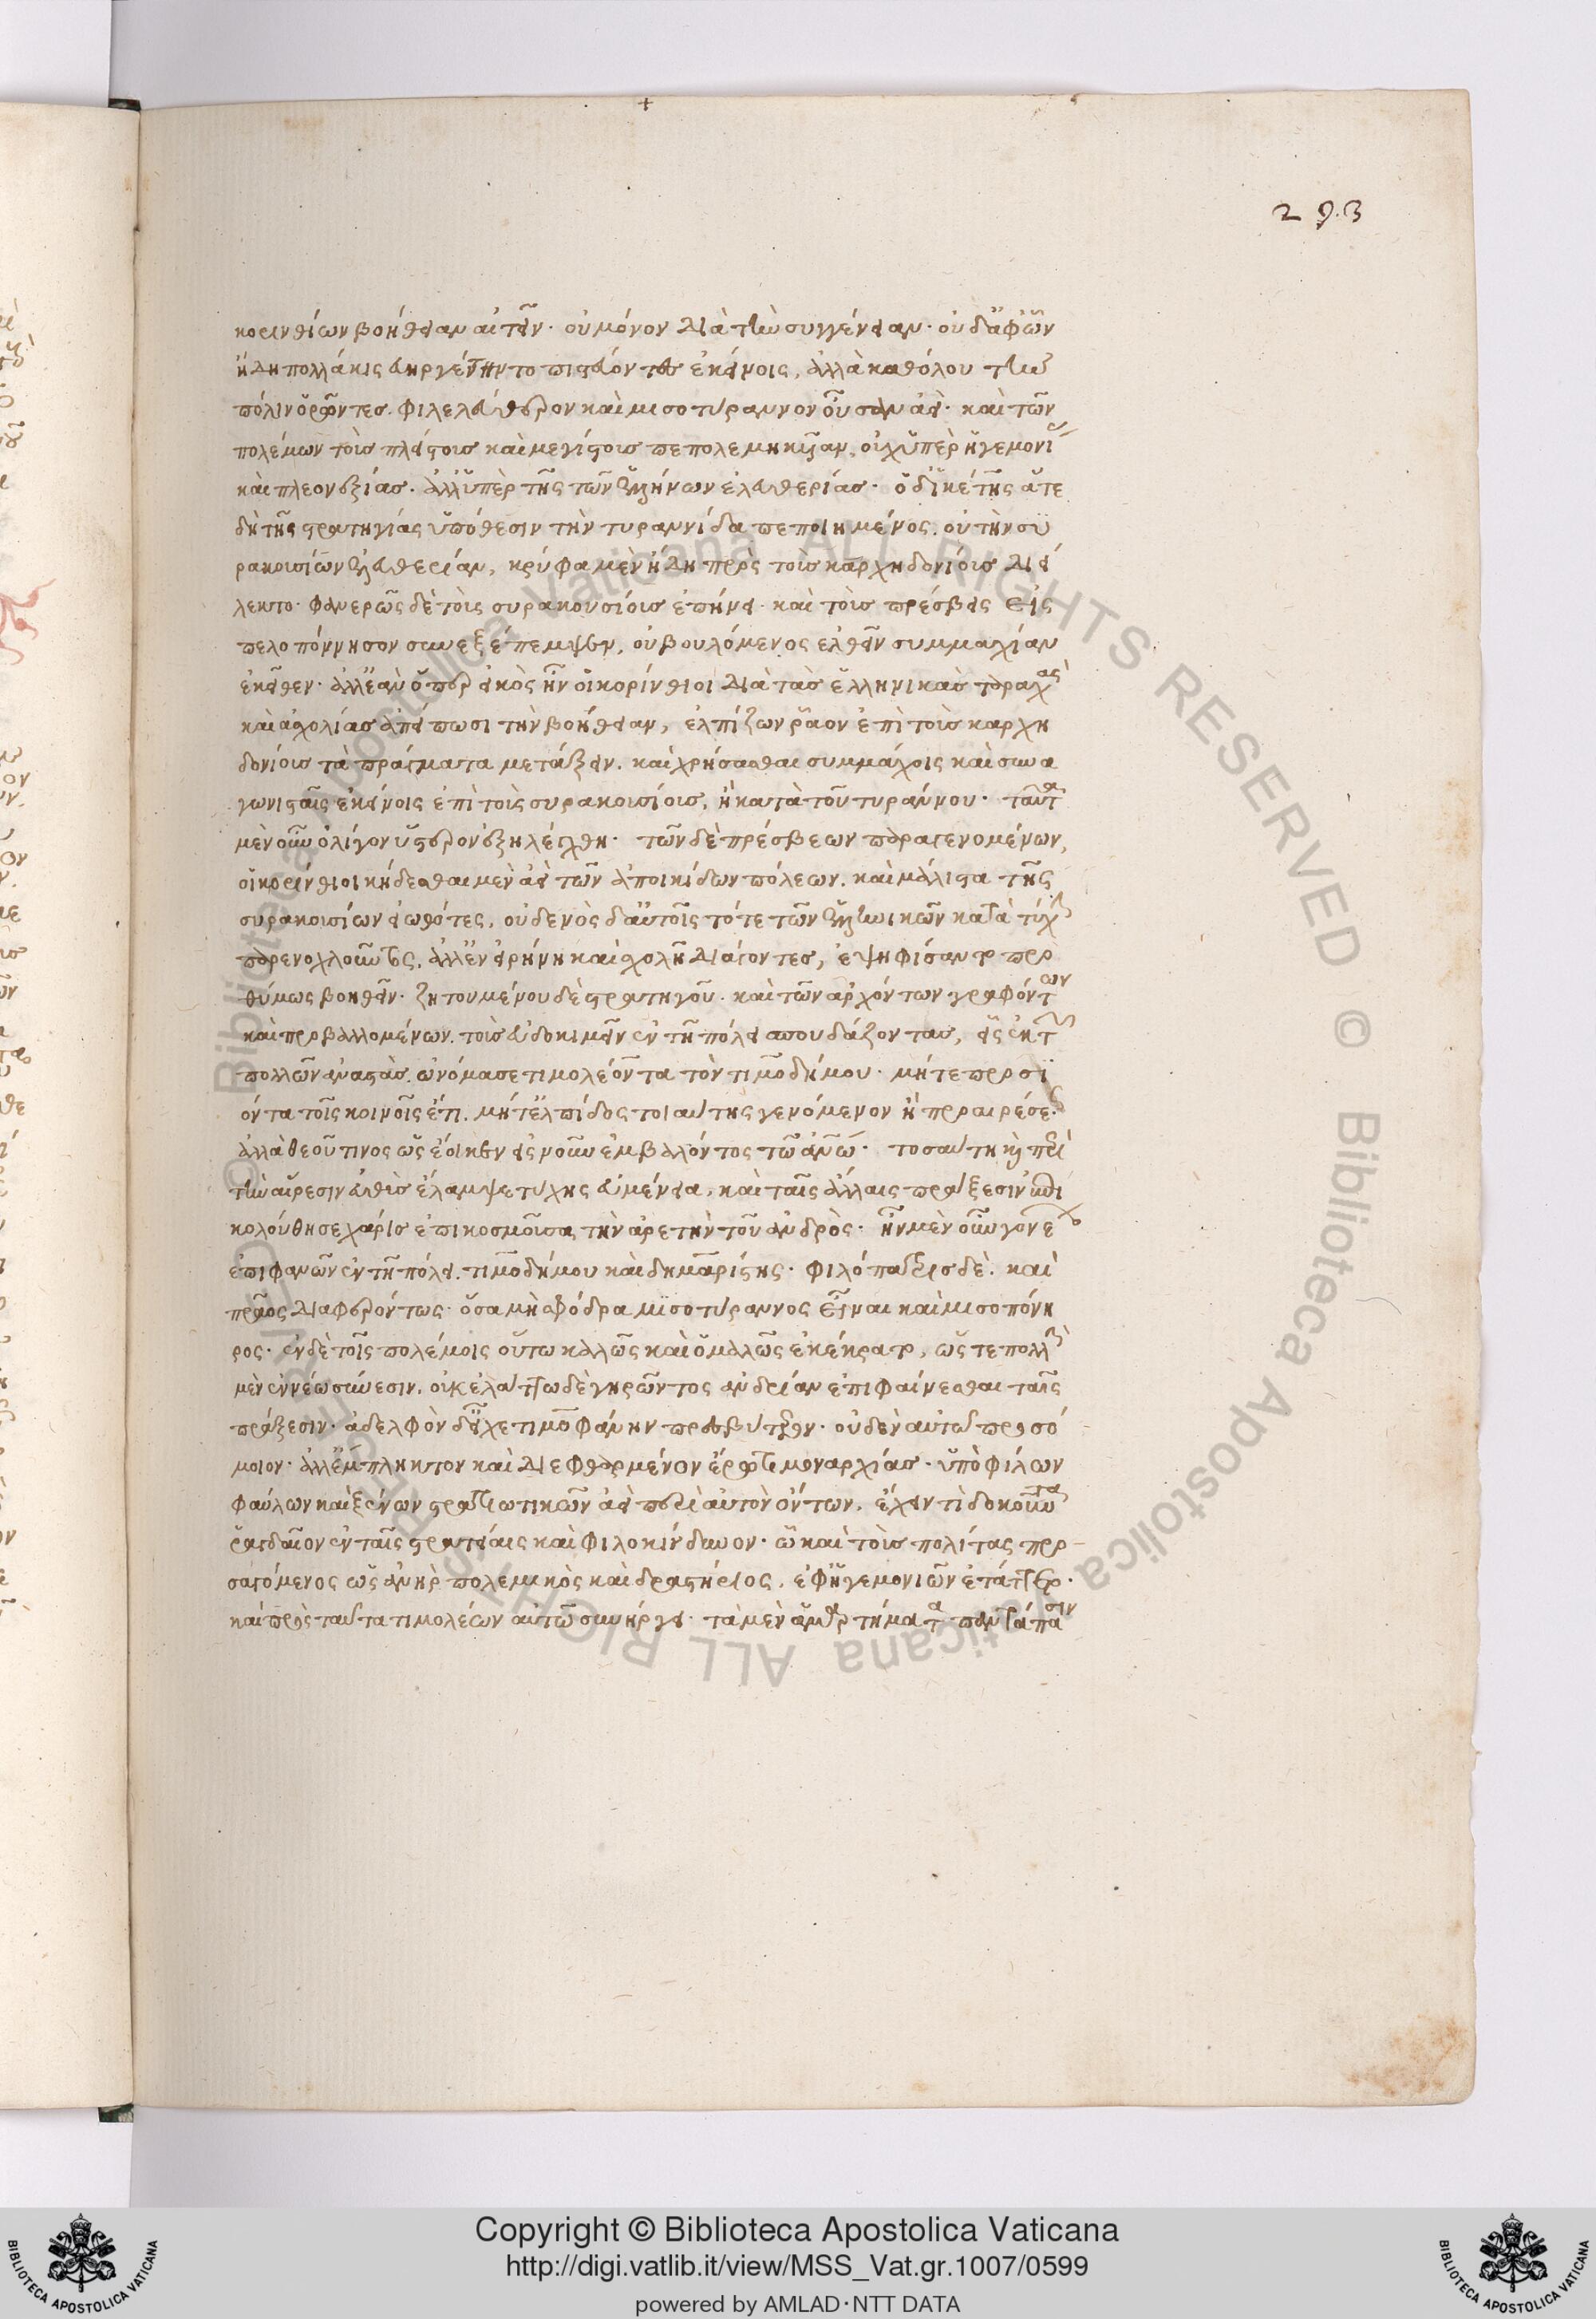 293
κορινθίων βοήθειαν αἰτεῖν. οὐ μόνον διὰ τὴν συγγένειαν. οὐδ' ἀφ' ὧν
ἤδη πολλάκις εὐηργέτηντο πιστεύοντες ἐκείνοις, ἀλλὰ καθόλου τὴν
πόλιν ὁρῶντες φιλελεύθερον καὶ μισοτύραννον οὖσαν ἀεὶ. καὶ τῶν
πολέμων τοὺς πλείστους καὶ μεγίστους πεπολεμηκυῖαν, οὐχ ὑπὲρ ἡγεμονίας
καὶ πλεονεξίας. ἀλλ' ὑπὲρ τῆς τῶν ἑλλήνων ἐλευθερίας. ὁ δ' ἱκέτης ἅτε
δὴ τῆς στρατηγίας ὑπόθεσιν τὴν τυραννίδα πεποιημένος, οὐ τὴν συ
ρακουσίων ἐλευθερίαν, κρύφα μὲν ἤδη πρὸς τοὺς καρχηδονίους διεί
λεκτο. φανερῶς δὲ τοὺς συρακουσίους ἐπῄνει. καὶ τοὺς πρέσβεις εἰς
πελοπόννησον συνεξέπεμψεν, οὐ βουλόμενος ἐλθεῖν συμμαχίαν
ἐκεῖθεν. ἀλλ' ἐὰν ὅπερ εἰκὸς ἦν οἱ κορίνθιοι διὰ τὰς ἑλληνικὰς ταραχὰς
καὶ ἀσχολίας ἀπείπωσι τὴν βοήθειαν, ἐλπίζων ῥᾶον ἐπὶ τοὺς καρχη
δονίους τὰ πράγματα μετάξειν. καὶ χρήσασθαι συμμάχοις καὶ συνα
γωνισταῖς ἐκείνοις ἐπὶ τοὺς συρακουσίους, ἢ κατὰ τοῦ τυράννου. ταῦτα
μὲν οὖν ὀλίγον ὕστερον ἐξηλέγχθη. τῶν δὲ πρέσβεων παραγενομένων,
οἱ κορίνθιοι κήδεσθαι μὲν ἀεὶ τῶν ἀποικίδων πόλεων. καὶ μάλιστα τῆς
συρακουσίων εἰωθότες, οὐδενὸς δ' αὐτοῖς τότε τῶν ἑλληνικῶν κατὰ τύχην
παρενοχλοῦντος, ἀλλ' ἐν εἰρήνη καὶ σχολῆ διάγοντες, ἐψηφίσαντο προ
θύμως βοηθεῖν. ζητουμένου δὲ στρατηγοῦ. καὶ τῶν ἀρχόντων γραφόντων
καὶ προβαλλομένων. τοὺς εὐδοκιμεῖν ἐν τῆ πόλει σπουδάζοντας, εἷς ἐκ τῶν
πολλῶν ἀναστὰς. ὠνόμασε τιμολέοντα τὸν τιμοδήμου. μήτε προσι
όντα τοῖς κοινοῖς ἔτι. μήτ' ἐλπίδος τοιαύτης γενόμενον ἢ προαιρέσεως.
ἀλλὰ θεοῦ τινος ὡς ἔοικεν εἰς νοῦν ἐμβαλόντος τῶ ἀνθρώπω. τοσαύτη καὶ περὶ
τὴν αἵρεσιν εὐθὺς ἔλαμψε τύχης εὐμένεια, καὶ ταῖς ἄλλαις πράξεσιν ἐπη
κολούθησε χάρις ἐπικοσμοῦσα τὴν ἀρετὴν τοῦ ἀνδρὸς. ἦν μὲν οὖν γονέων
ἐπιφανῶν ἐν τῆ πόλει. τιμοδήμου καὶ δημαρίστης. φιλόπατρις δὲ. καὶ
πρᾶος διαφερόντως. ὅσα μὴ σφόδρα μισοτύραννος εἶναι καὶ μισοπόνη
ρος. ἐν δὲ τοῖς πολέμοις οὕτω καλῶς καὶ ὁμαλῶς ἐκέκρατο, ὥστε πολλὴν
μὲν ἐν νέω σύνεσιν. οὐκ ἐλάττω δὲ γηρῶντος ἀνδρίαν ἐπιφαίνεσθαι ταῖς
πράξεσιν. ἀδελφὸν δ' εἶχε τιμοφάνην πρεσβύτερον. οὐδὲν αὐτῶ προσό
μοιον. ἀλλ' ἔμπληκτον καὶ διεφθαρμένον ἔρωτι μοναρχίας. ὑπὸ φίλων
φαύλων καὶ ξένων στρατιωτικῶν ἀεὶ περὶ αὐτὸν ὄντων. ἔχειν τὶ δοκοῦντα
ῥαγδαῖον ἐν ταῖς στρατείαις καὶ φιλοκίνδυνον. ὧ καὶ τοὺς πολίτας προ-
σαγόμενος ὡς ἀνὴρ πολεμικὸς καὶ δραστήριος, ἐφ' ἡγεμονιῶν ἐτάττετο.
καὶ πρὸς ταῦτα τιμολέων αὐτῶ συνήργει. τὰ μὲν ἁμαρτήματα παντάπασιν
Copyright © Biblioteca Apostolica Vaticana
http://digi.vatlib.it/view/MSS_Vat.gr.1007/0599
powered by AMLAD·NTT DATA